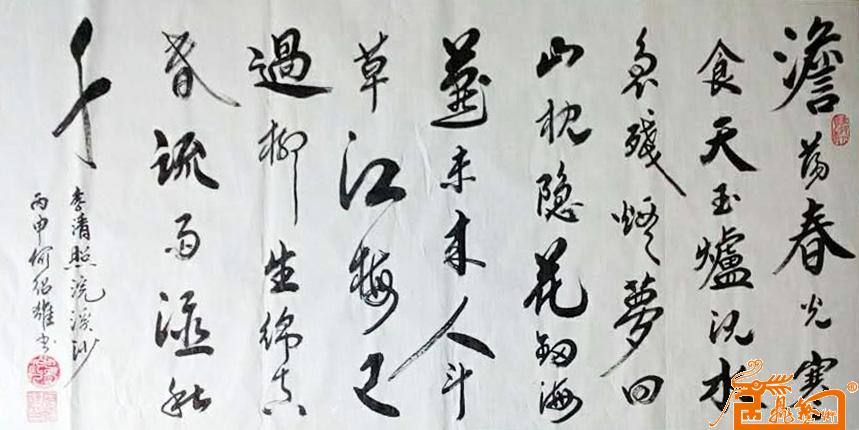 澹荡春光寒
食天玉爐沉水
袅殘煙夢回
山枕隐花鈿海
燕未来人斗
草江梅已
過柳生綿黄
昏疏雨湿秋
千
李清照浣溪沙
丙申何绍雄书